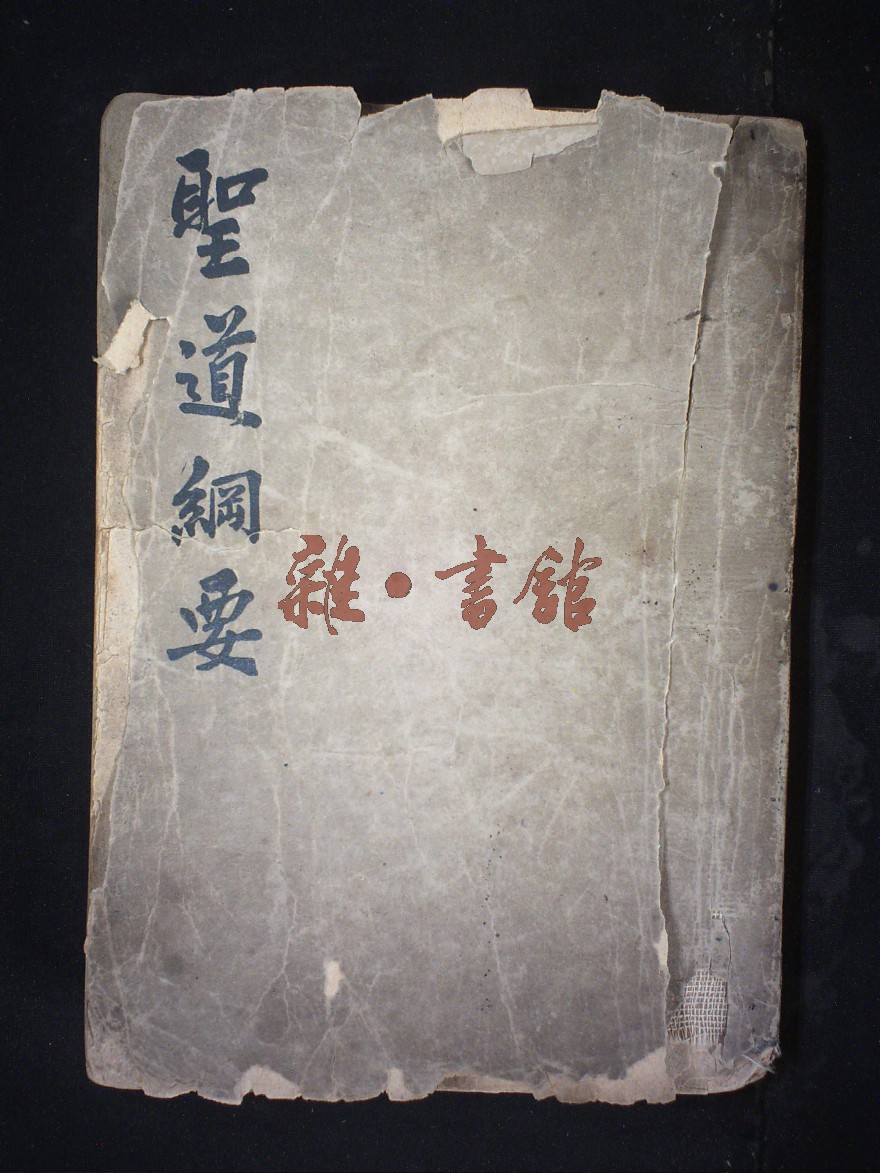 聖道綱要
雜·書館